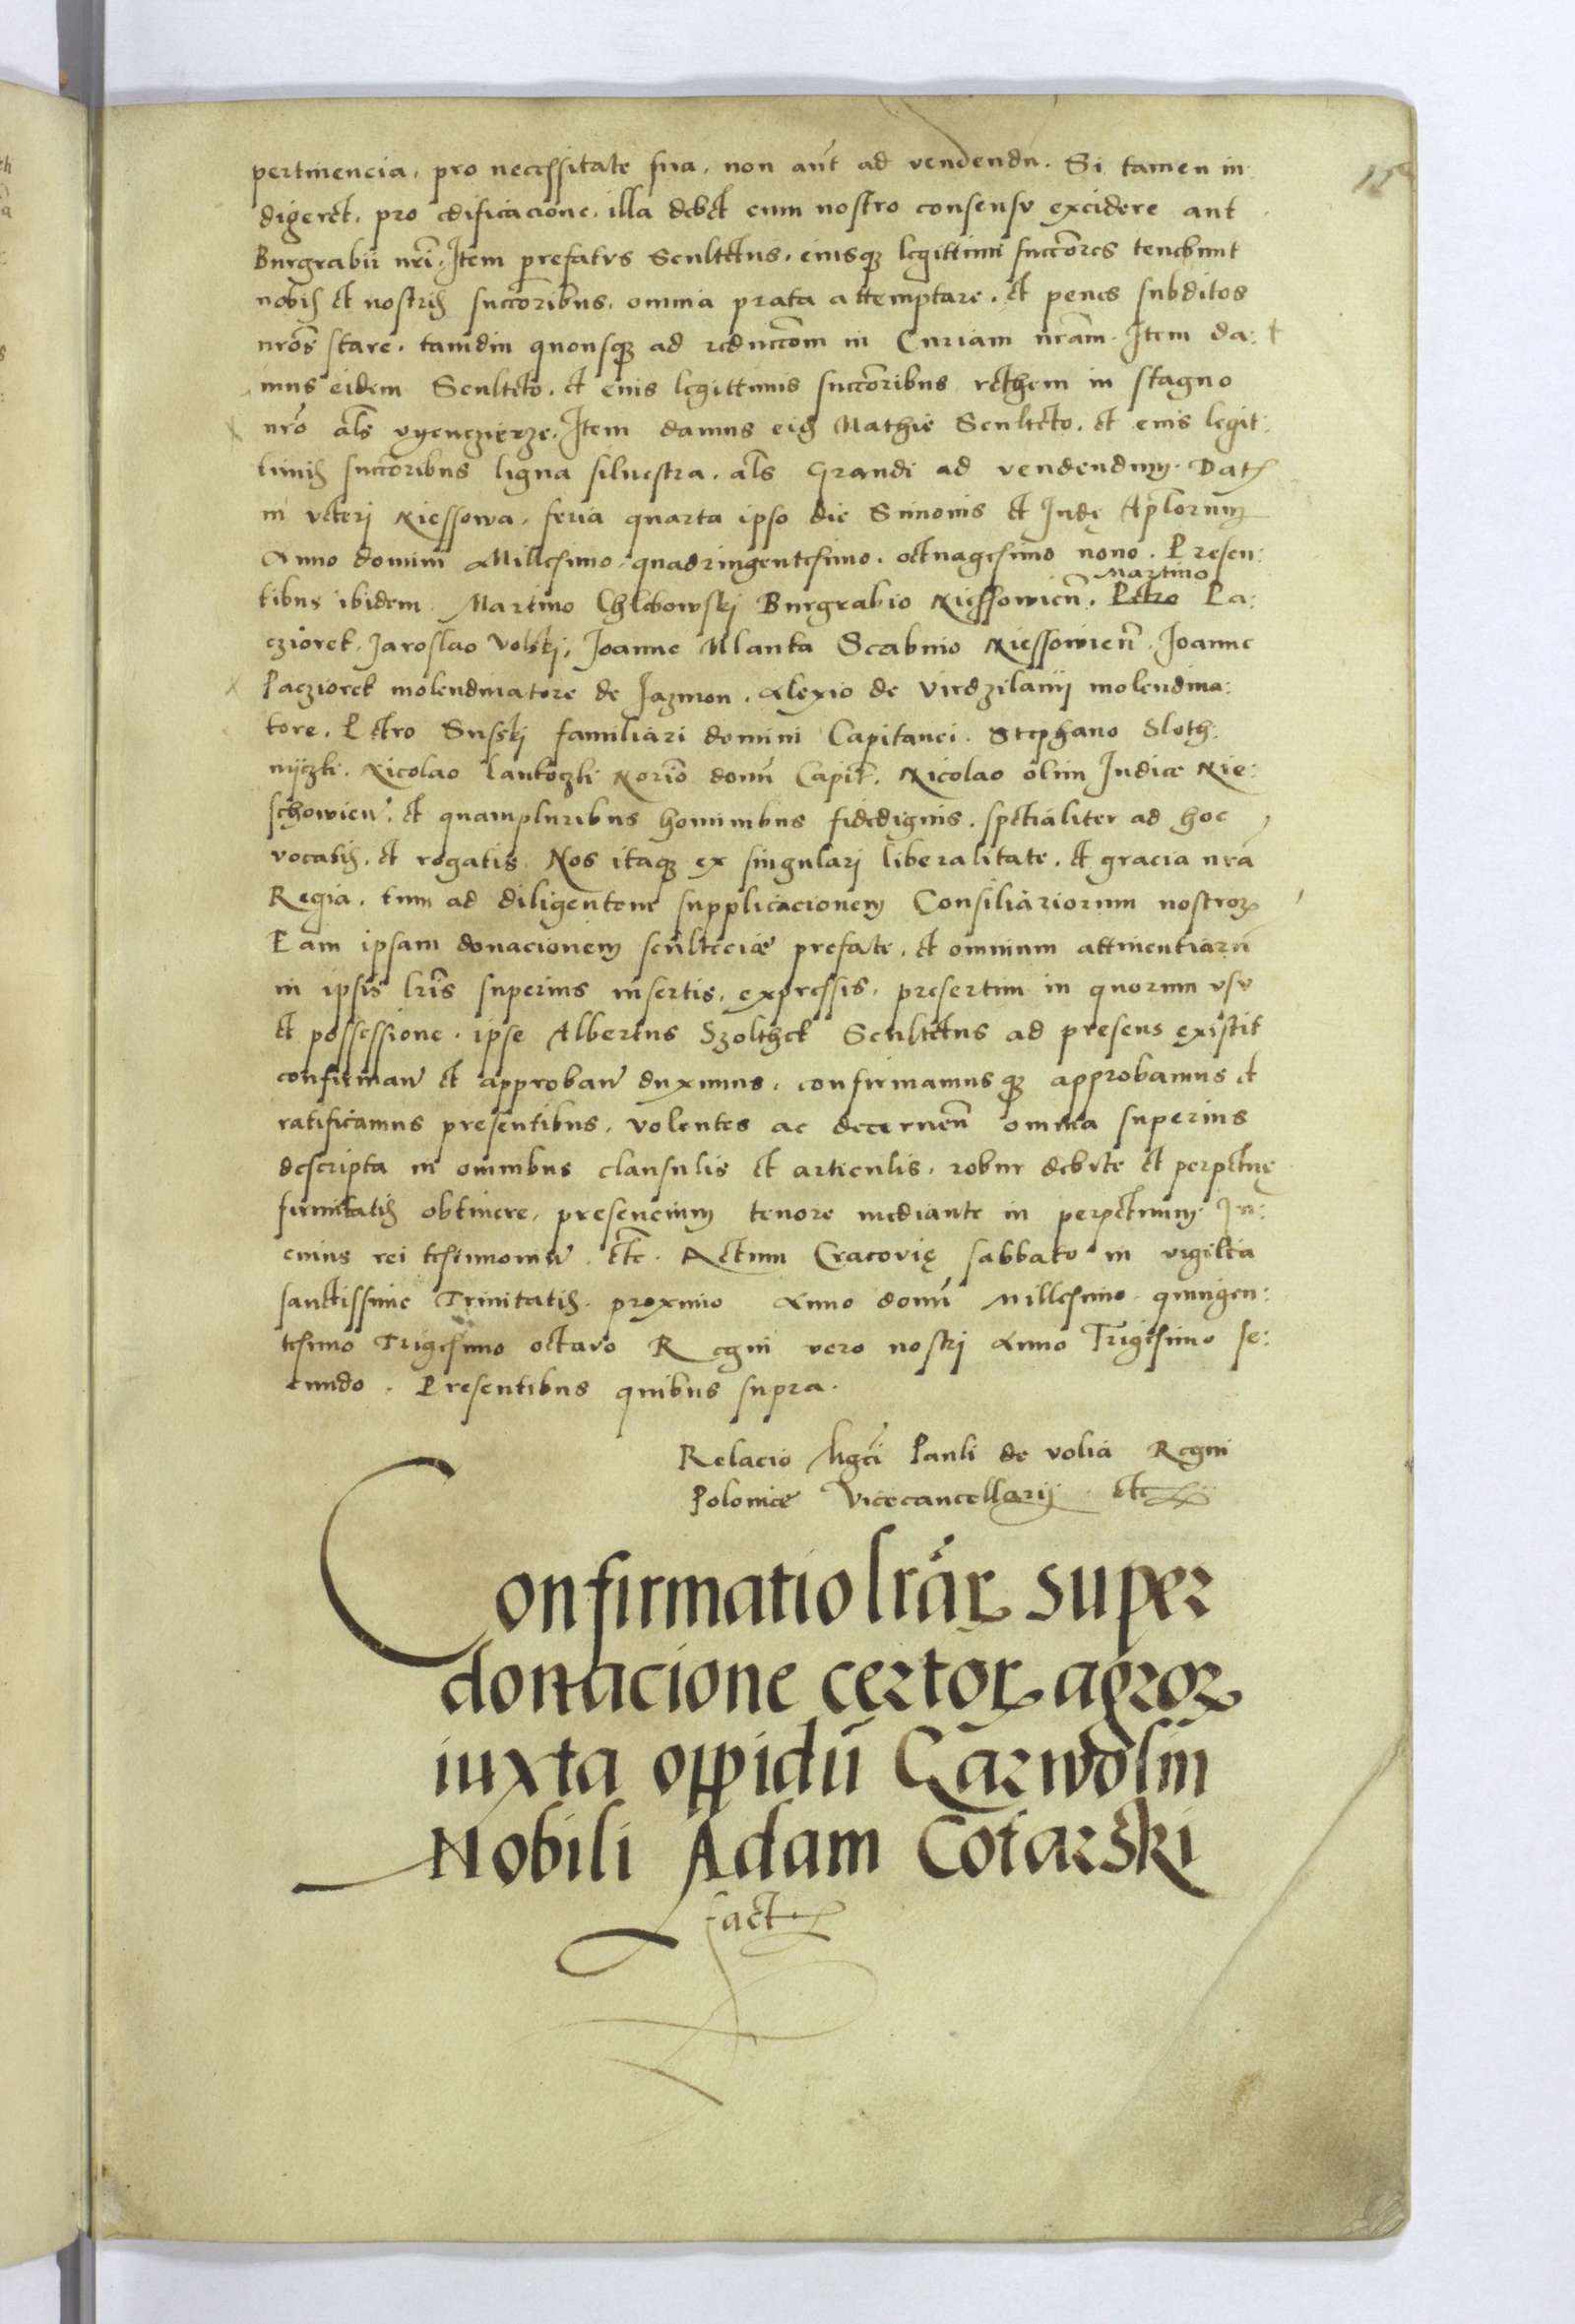 pertinencia, pro necessitate sua, non aut̃ ad vendendũ. Si tamen in
digeret, pro edificacione, illa debet cum nostro consensu excidere aut
Burgrabii nr̃i. Item prefatus Scultetus, eiusq₃ legittimi succ̃ores tenebunt
nobis et nostris succ̃oribus, omnia prata attemptare, et penes subditos
nr̃os stare, tamdiu quousq₃ ad reducc̃om in Curiam nr̃am. Item da:
mus eidem Sculteto, et eius legittimis succ̃oribus rethem in stagno
nr̃o al̃s vyenczierze. Item damus eid̃ Mathie Sculteto, et eius legit:
timis succ̃oribus ligna silvestra, al̃s Grandi ad vendendum. Dat̃
in veteri Niessowa, feria quarta ipso die Simonis et Judę Ap̃lorum
Anno domini Millesimo, quadringentesimo, octuagesimo nono. Presen:
tibus ibidem Martino Chlebowskj Burgrabio Niessowien̄. Petro Martino Pa:
cziorek, Jaroslao Volskj, Joanne Ulanka Scabino Niessowien̄. Joanne
Pacziorek molendinatore de Jazmon. Alexio de Virdzilanij molendina:
tore. Petro Susskj familiari domini Capitanei. Stephano Sloth:
nijczki. Nicolao Lankoczki Norĩo domĩ Capit̃. Nicolao olim Judice Nie:
schowien̄. et quampluribus hominibus fidedignis, spetialiter ad hoc
vocatis, et rogatis. Nos itaq₃ ex singulari liberalitate, et gracia nr̃a
Regia, tum ad diligentem supplicacionem Consiliariorum nostroꝝ
Eam ipsam donacionem scultecie prefate, et omnium attinentiarũ
in ipsis lr̃is superius insertis, expressis, presertim in quorum usu
et possessione, ipse Albertus Szolthek Scultetus ad presens existit
confirman̄ et approban̄ duximus, confirmamusq₃ approbamus et
ratificamus presentibus, volentes ac decernen̄ omnia superius
descripta in omnibus clausulis et articulis, robur debite et perpetuę
firmitatis obtinere, presencium tenore mediante in perpetuum. In:
cuius rei testimoniũ etc̃. Actum Cracovię sabbato in vigilia
sanctissime Trinitatis proximo Anno domĩ Millesimo quingen:
tesimo Trigesimo octavo Regni vero nostri Anno Trigesimo se:
cundo. Presentibus quibus supra.
Relacio Mgc̃i Pauli de volia Regni
Polonie Vicecancellarij etc
Confirmatio lr̃aꝝ super
donacione certoꝝ agroꝝ
iuxta oppidũ Garwolin
Nobili Adam Cotarski
fact